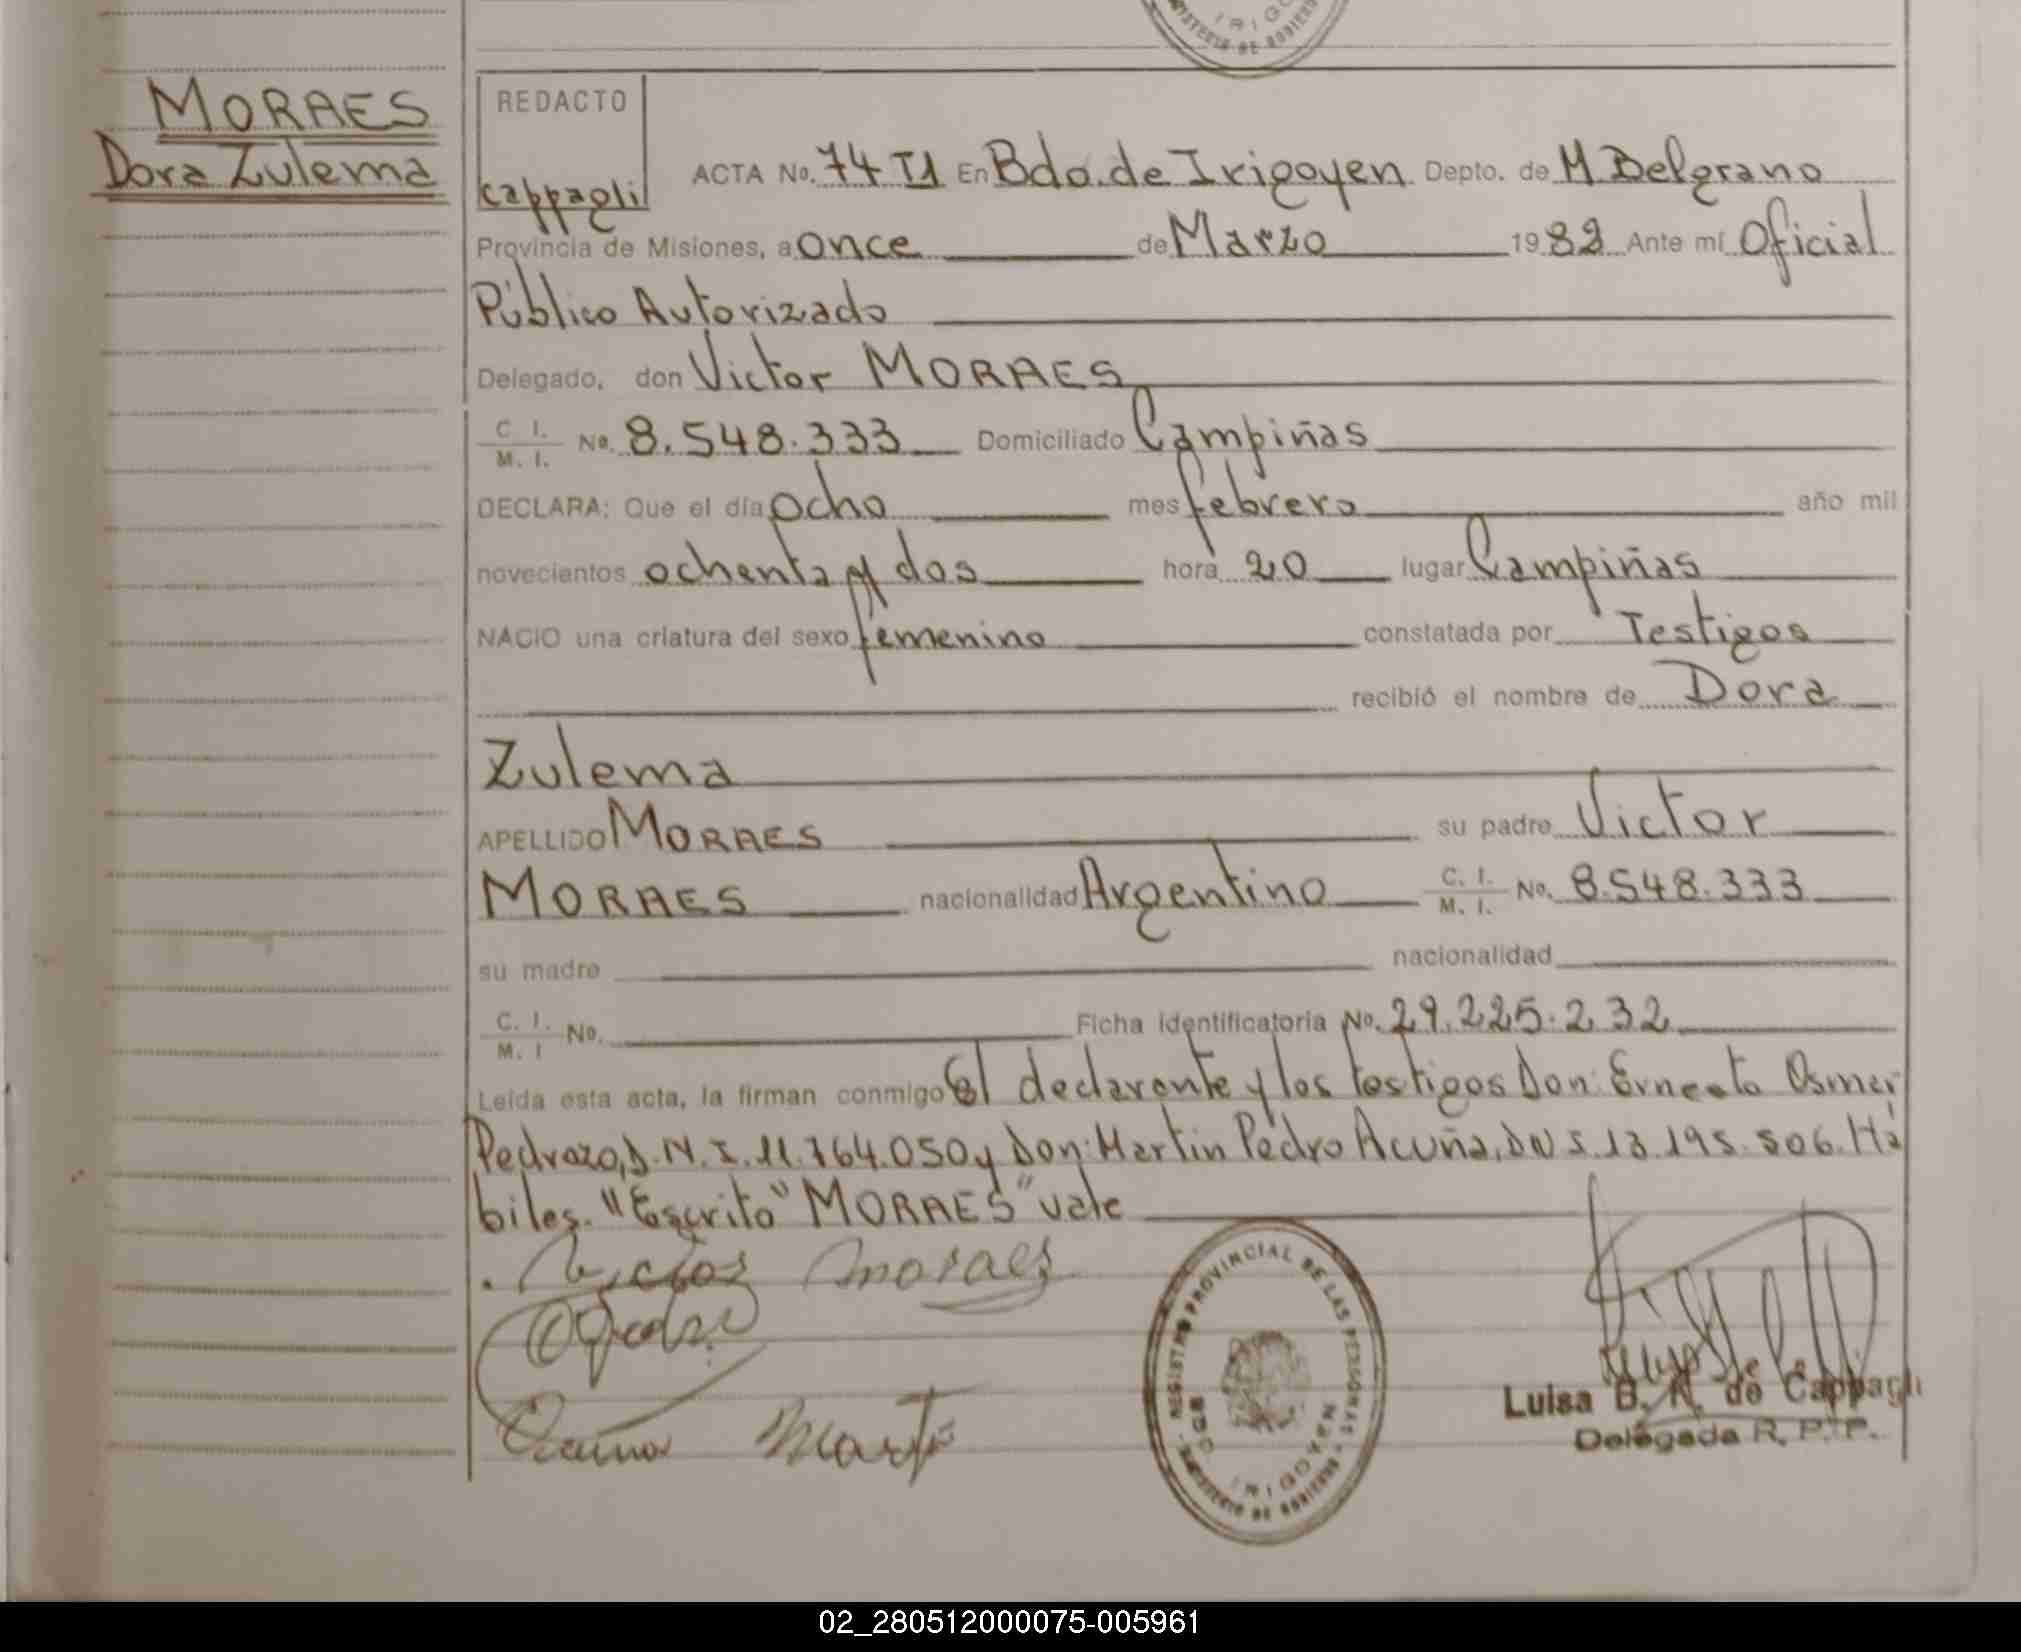 MORAES
Dora Zulema
REDACTO
Cappagli
ACTA No. 74 T1 En Bdo. de Irigoyen Depto. de M. Belgrano
Provincia de Misiones, a once de Marzo 1982 Ante mí Oficial
Público Autorizado
Delegado, don Victor MORAES
C. I. / M. I. No. 8.548.333 Domiciliado Campiñas
DECLARA: Que el día ocho mes febrero año mil
novecientos ochenta y dos hora 20 lugar Campiñas
NACIO una criatura del sexo femenino constatada por Testigos
recibió el nombre de Dora
Zulema
APELLIDO MORAES su padre Victor
MORAES nacionalidad Argentino C. I. / M. I. No. 8.548.333
su madre nacionalidad
C. I. / M. I No. Ficha identificatoria No. 29.225.232
Leída esta acta, la firman conmigo El declarante y los testigos Don: Ernesto Osmar
Pedrozo, D.N.I. 11.764.050 y Don: Martin Pedro Acuña, DNI. 13.195.506. Há
biles. "Escrito" MORAES" vale
Victor Moraes
Acuña Mart
REGISTRO PROVINCIAL DE LAS PERSONAS - MINISTERIO DE GOBIERNO
IRIGOYEN
Luisa B. N. de Cappagli
Delegada R. P. P.
02_280512000075-005961